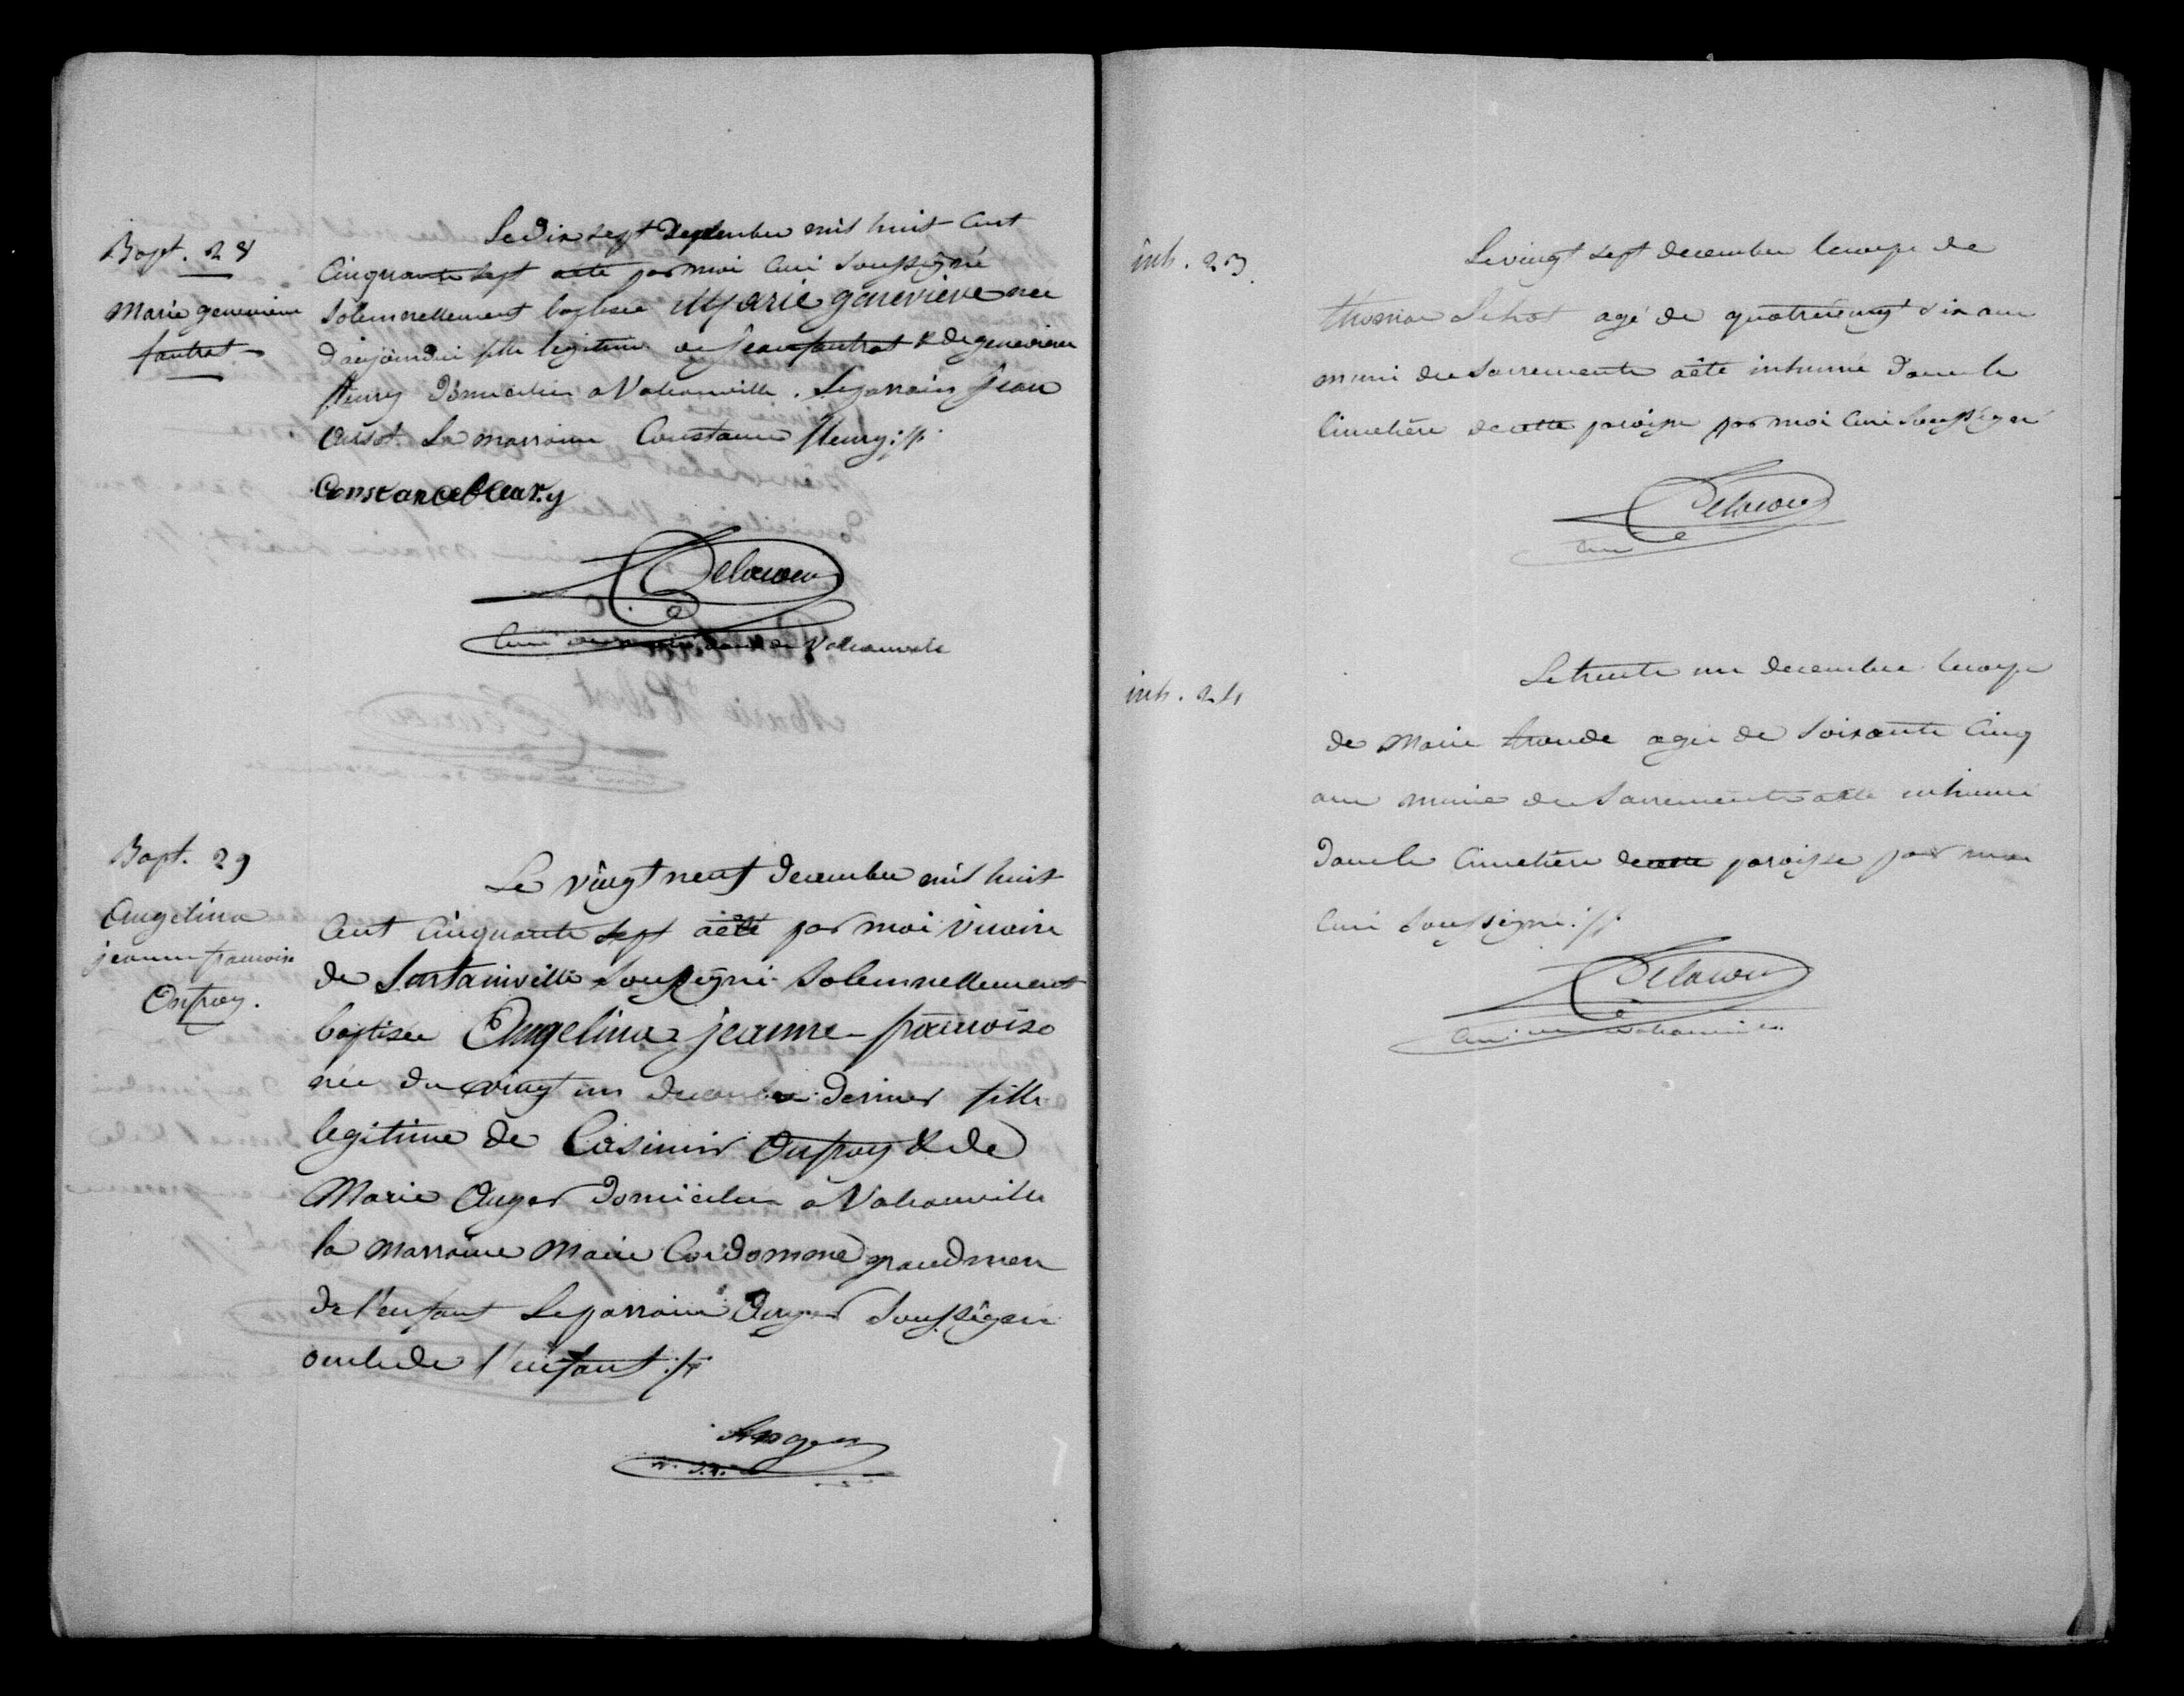 Bapt. 28
Marie genevieve
fautrat
Le Dix sept Septembre mil huit cent
Cinquante sept a été par moi Curé Soussigné
Solemnellement baptisée Marie genevieve née
d'aujourdui fille legitime de Jean fautrat & de genevieve
fleury Domiciliés a Vatteville. Le parrain Jean
La marraine Constance fleury ://:
Constance fleury
Delacour
Curé
Bapt. 29
Angelina
jeanne françoise
Onfroy.
Le vingt neuf decembre mil huit
Cent Cinquante sept a été par moi vicaire
de Sortainville Soussigné Solemnellement
baptisée Angelina jeanne françoise
née du vingt un decembre dernier fille
legitime de Casimir Onfroy & de
Marie Auger Domiciliés a
la marraine Marie Cordommé grand mere
de l'enfant Le parrain Auger Soussigné
oncle de l'enfant ://:
Auger
inh. 23
Le vingt sept decembre le corps de
thomas Lehot agé de quatrevingt dix ans
muni des Sacrements a été inhumé dans le
Cimetière de cette paroisse par moi Curé Soussigné
Delacour
Curé
inh. 24
Le trente un decembre le corps
de Marie agée de Soixante Cinq
ans munie des Sacrements a été inhumé
dans le Cimetière de cette paroisse par moi
Curé Soussigné ://:
Delacour
Curé de